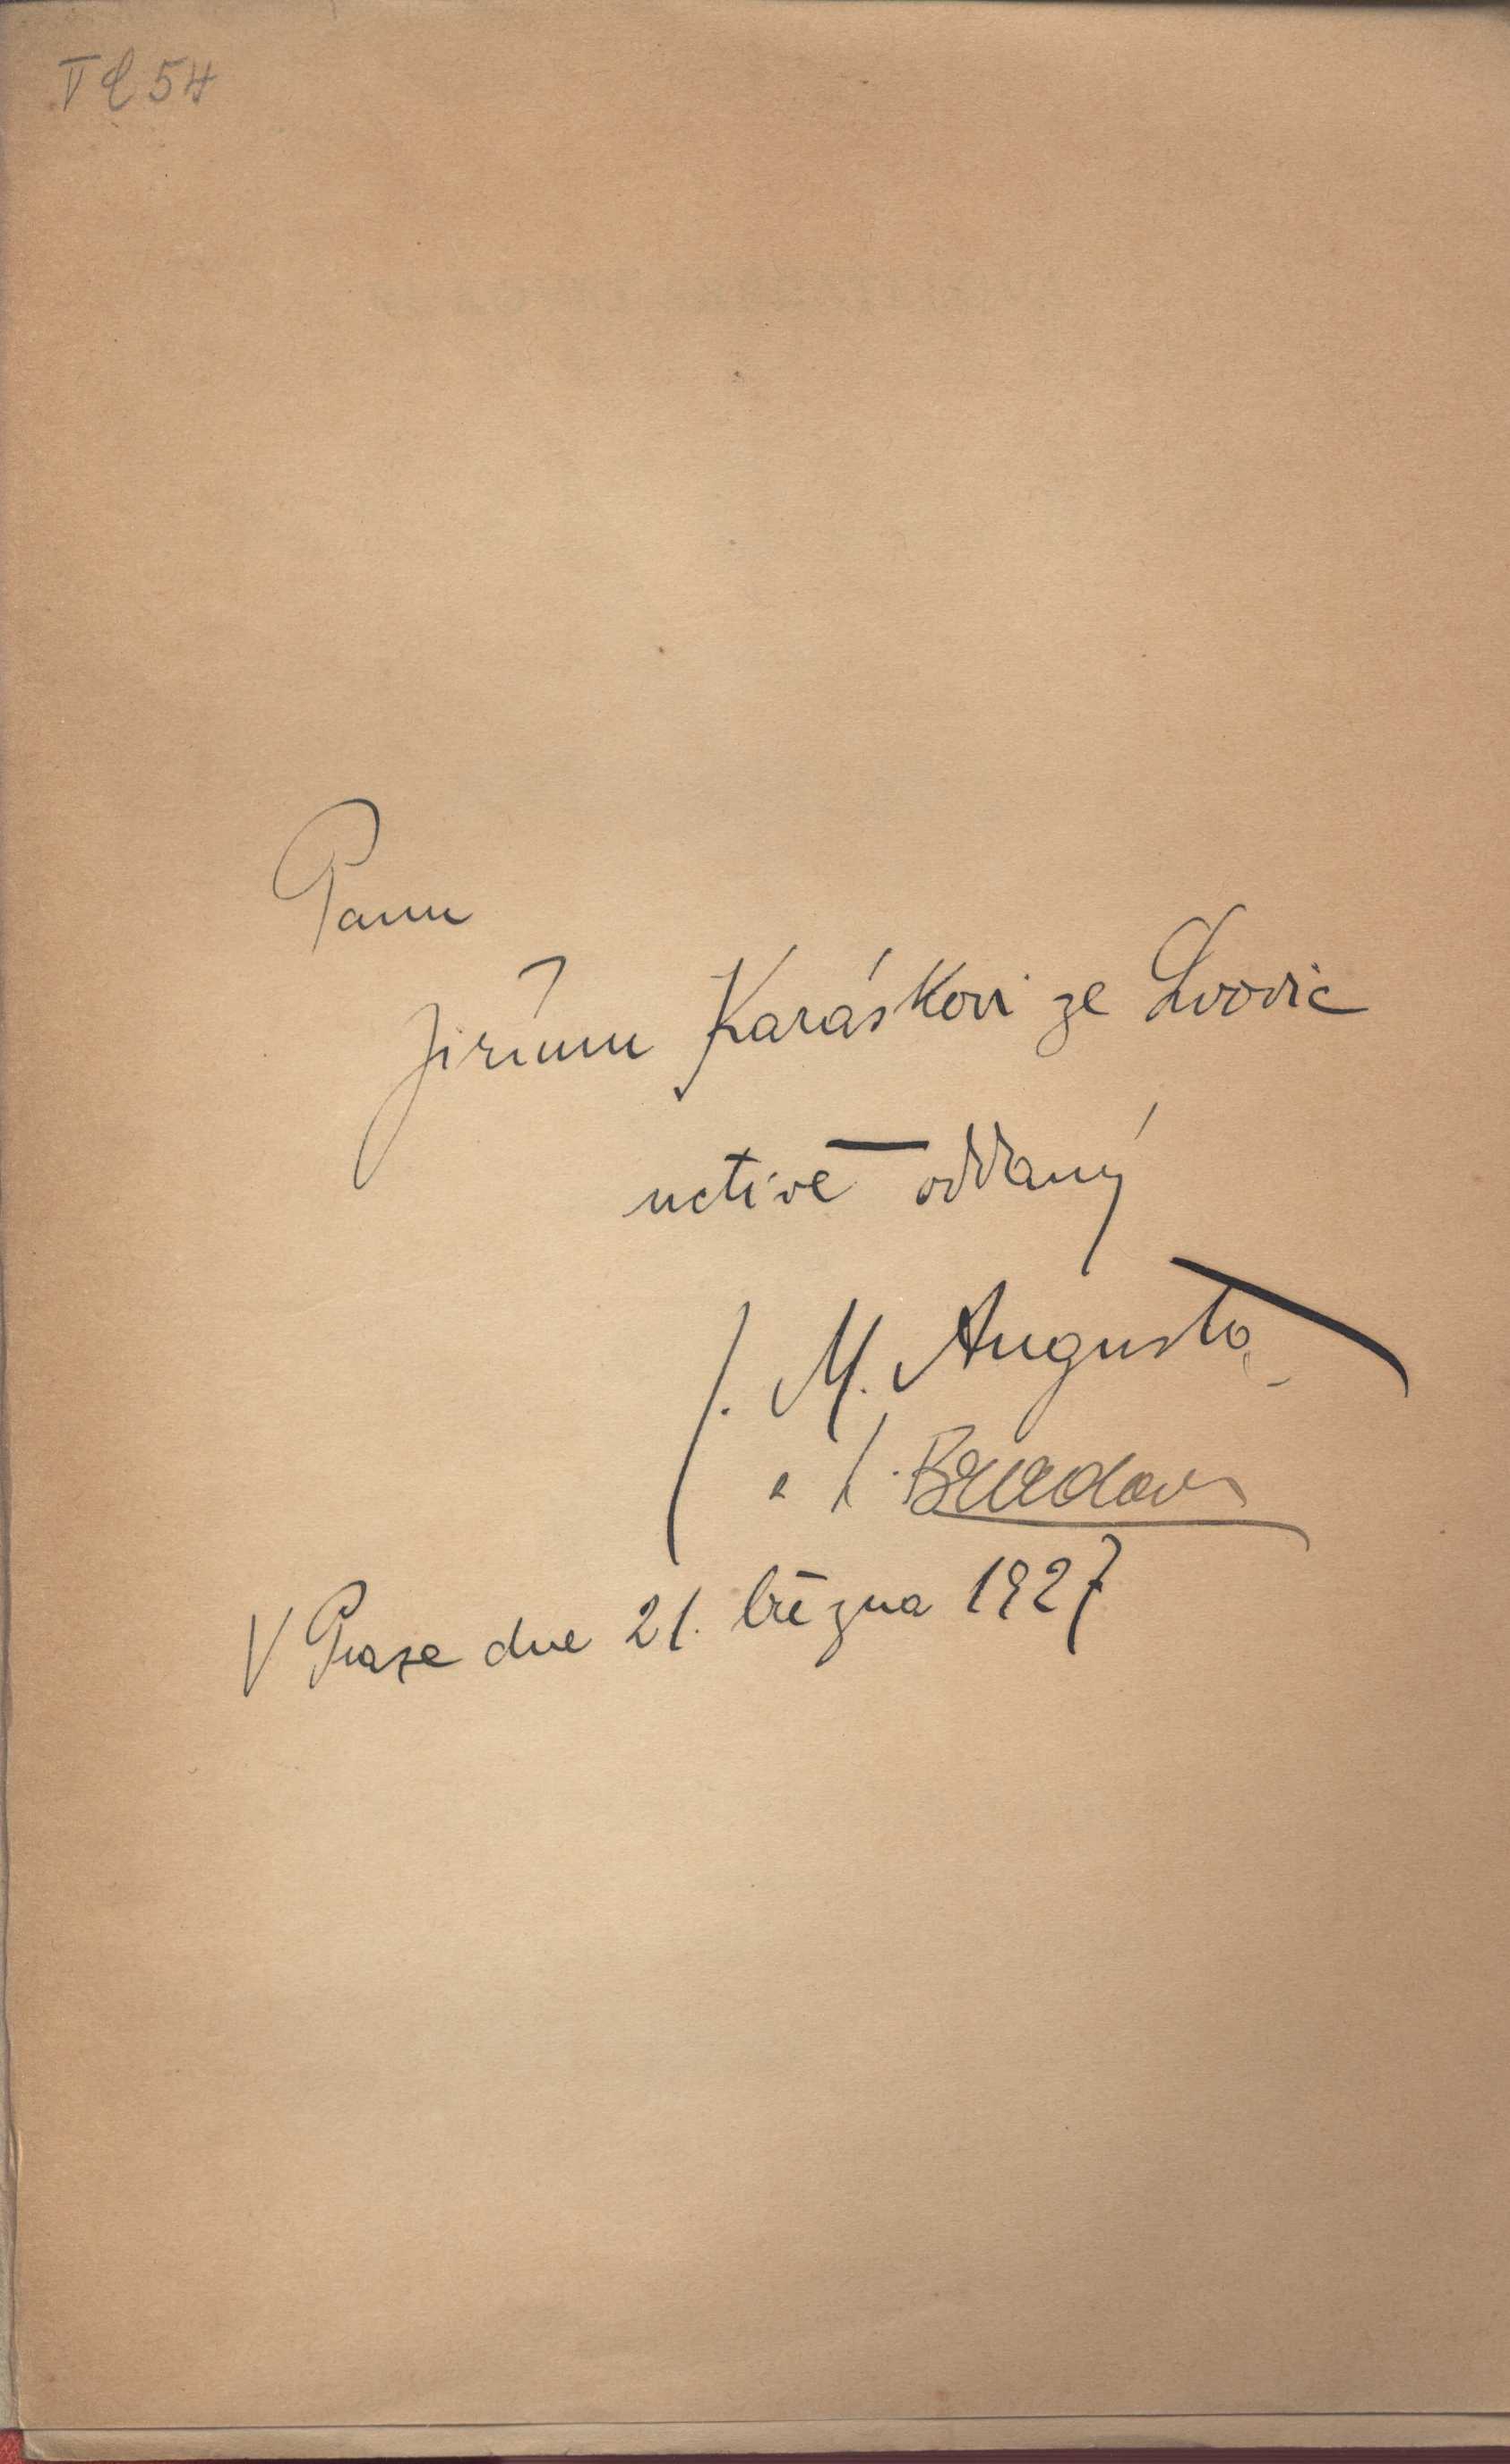 V C 54
Panu
Jiřímu Karáskovi ze Lvovic
uctivě oddaný
J. M. Augusta
a
V Praze dne 21. března 1927